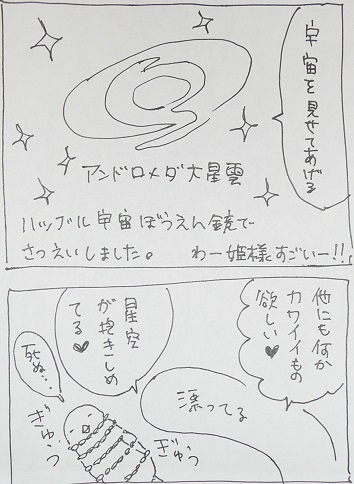 宇宙を見せてあげる
アンドロメダ大星雲
ハッブル宇宙ぼうえん鏡で
さつえいしました。 わー姫様すごいー!!
他にも何か
カワイイもの
欲しい♥
漂ってる
星空
が抱きしめ
てる♥
死ぬ…
ぎゅうっ
ぎゅうっ